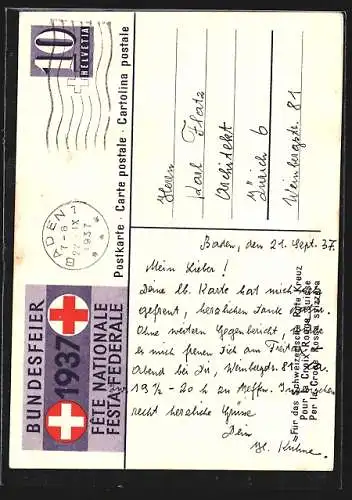 10
HELVETIA
Postkarte · Carte postale · Cartolina postale
BADEN 1
22. IX
1937
BUNDESFEIER
1937
FÊTE NATIONALE
FESTA FEDERALE
Herrn
Karl Platz
Architekt
Zürich 6
Weinbergstr. 81
Für das Schweizerische Rote Kreuz
Pour la Croix-Rouge suisse
Per la Croce Rossa svizzera
Baden, den 21. Sept. 37.
Mein Lieber!
Deine lb. Karte hat mich sehr
gefreut, herzlichen Dank
Ohne weitern Gegenbericht, würde
es mich freuen Dich am Freitag
abend bei Dir, Weinbergstr. 81
19½ - 20 h zu treffen. Inzwischen
recht herzliche Grüsse
Dein